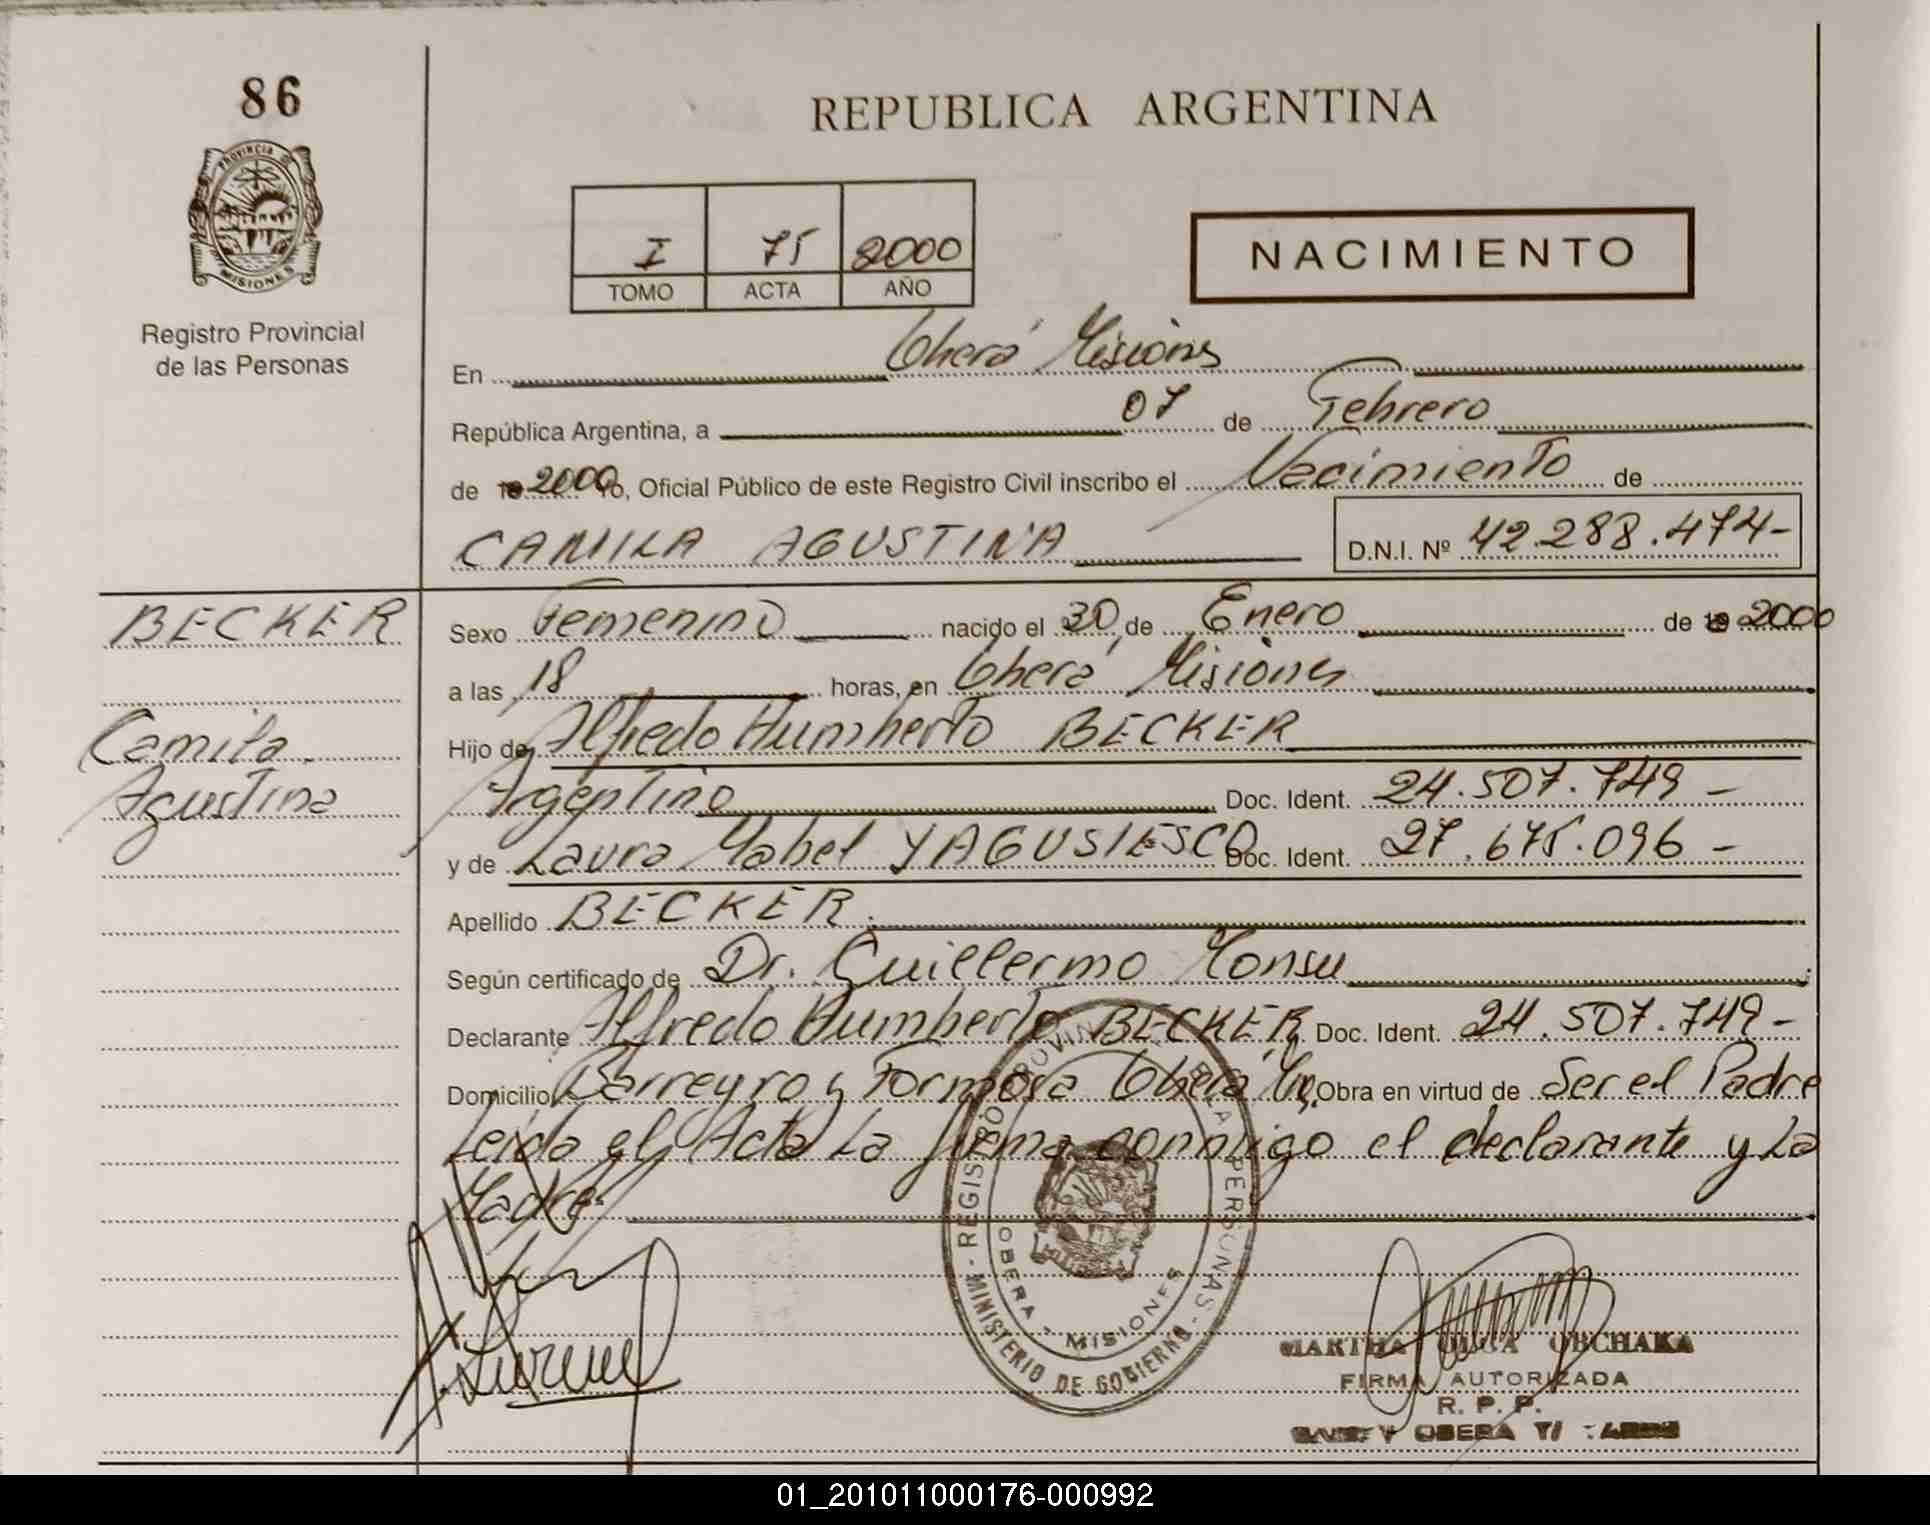 86
REPUBLICA ARGENTINA
PROVINCIA DE
MISIONES
Registro Provincial
de las Personas
I 75 2000
TOMO ACTA AÑO
NACIMIENTO
En Oberá Misiones
República Argentina, a 07 de Febrero
de 2000 Yo, Oficial Público de este Registro Civil inscribo el Nacimiento de
CAMILA AGUSTINA D.N.I. Nº 42.288.474-
BECKER
Camila
Agustina
Sexo Femenino nacido el 30 de Enero de 2000
a las 18 horas, en Oberá Misiones
Hijo de Alfredo Humberto BECKER
Argentino Doc. Ident. 24.507.749-
y de Laura Mabel YAGUSIESCO Doc. Ident. 27.675.096-
Apellido BECKER.
Según certificado de Dr. Guillermo Monsu
Declarante Alfredo Humberto BECKER Doc. Ident. 24.507.749-
Domicilio Barreyro y Formosa Oberá Obra en virtud de Ser el Padre
Leída el Acta La firma conmigo el declarante y La
Madre-
REGISTRO PROVINCIAL DE LAS PERSONAS
MINISTERIO DE GOBIERNO
OBERA - MISIONES
MARTHA OLGA OBCHAKA
FIRMA AUTORIZADA
R. P. P.
OBERA
01_201011000176-000992